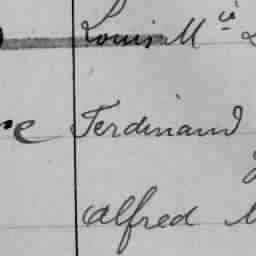 Louis Mcie
re Ferdinand
Alfred